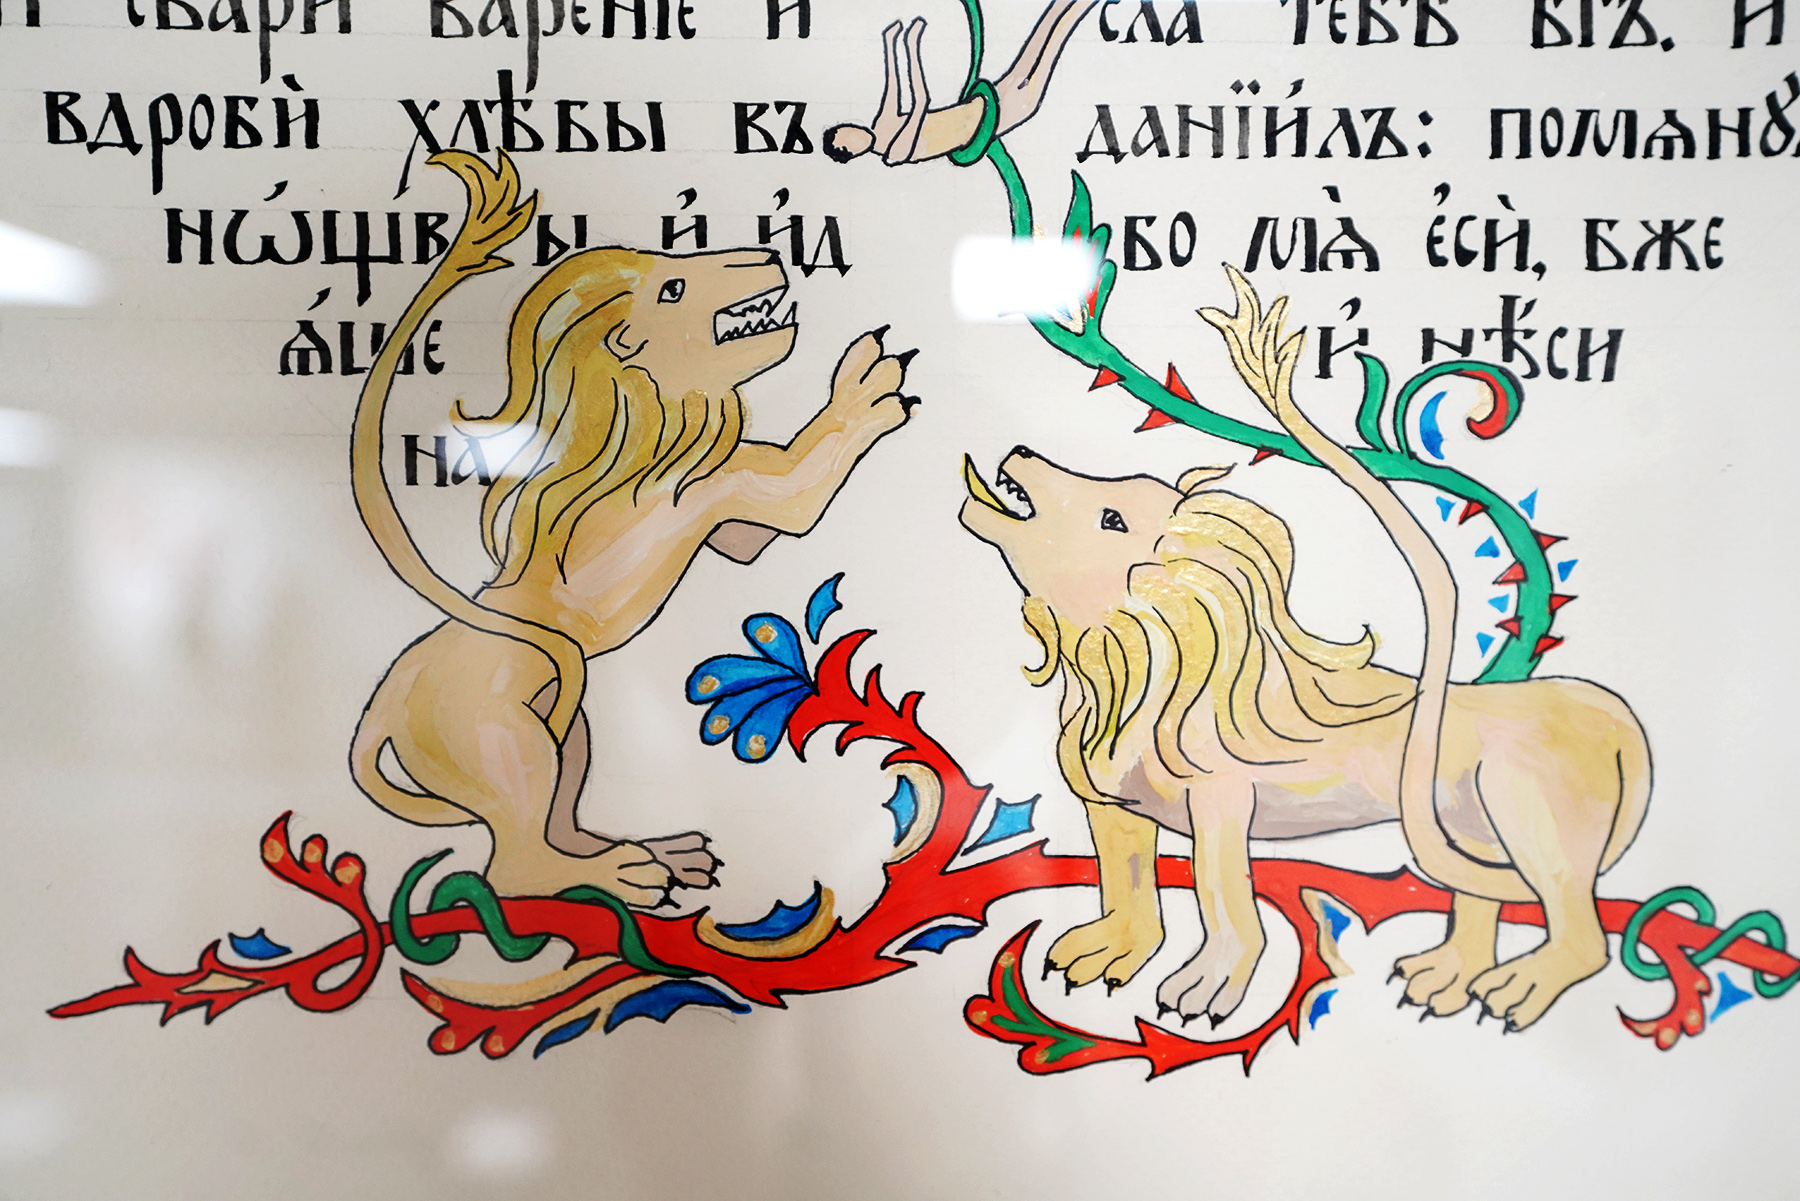 свари варенїе и
вдробѝ хлѣбы въ
нѡ́щвы и҆ и҆д
ѧ́ше
на
сла тебѣ бгъ. И
данїи́лъ: помѧнꙋ
бо мѧ̀ є҆сѝ, бже
и҆ нѣ́си